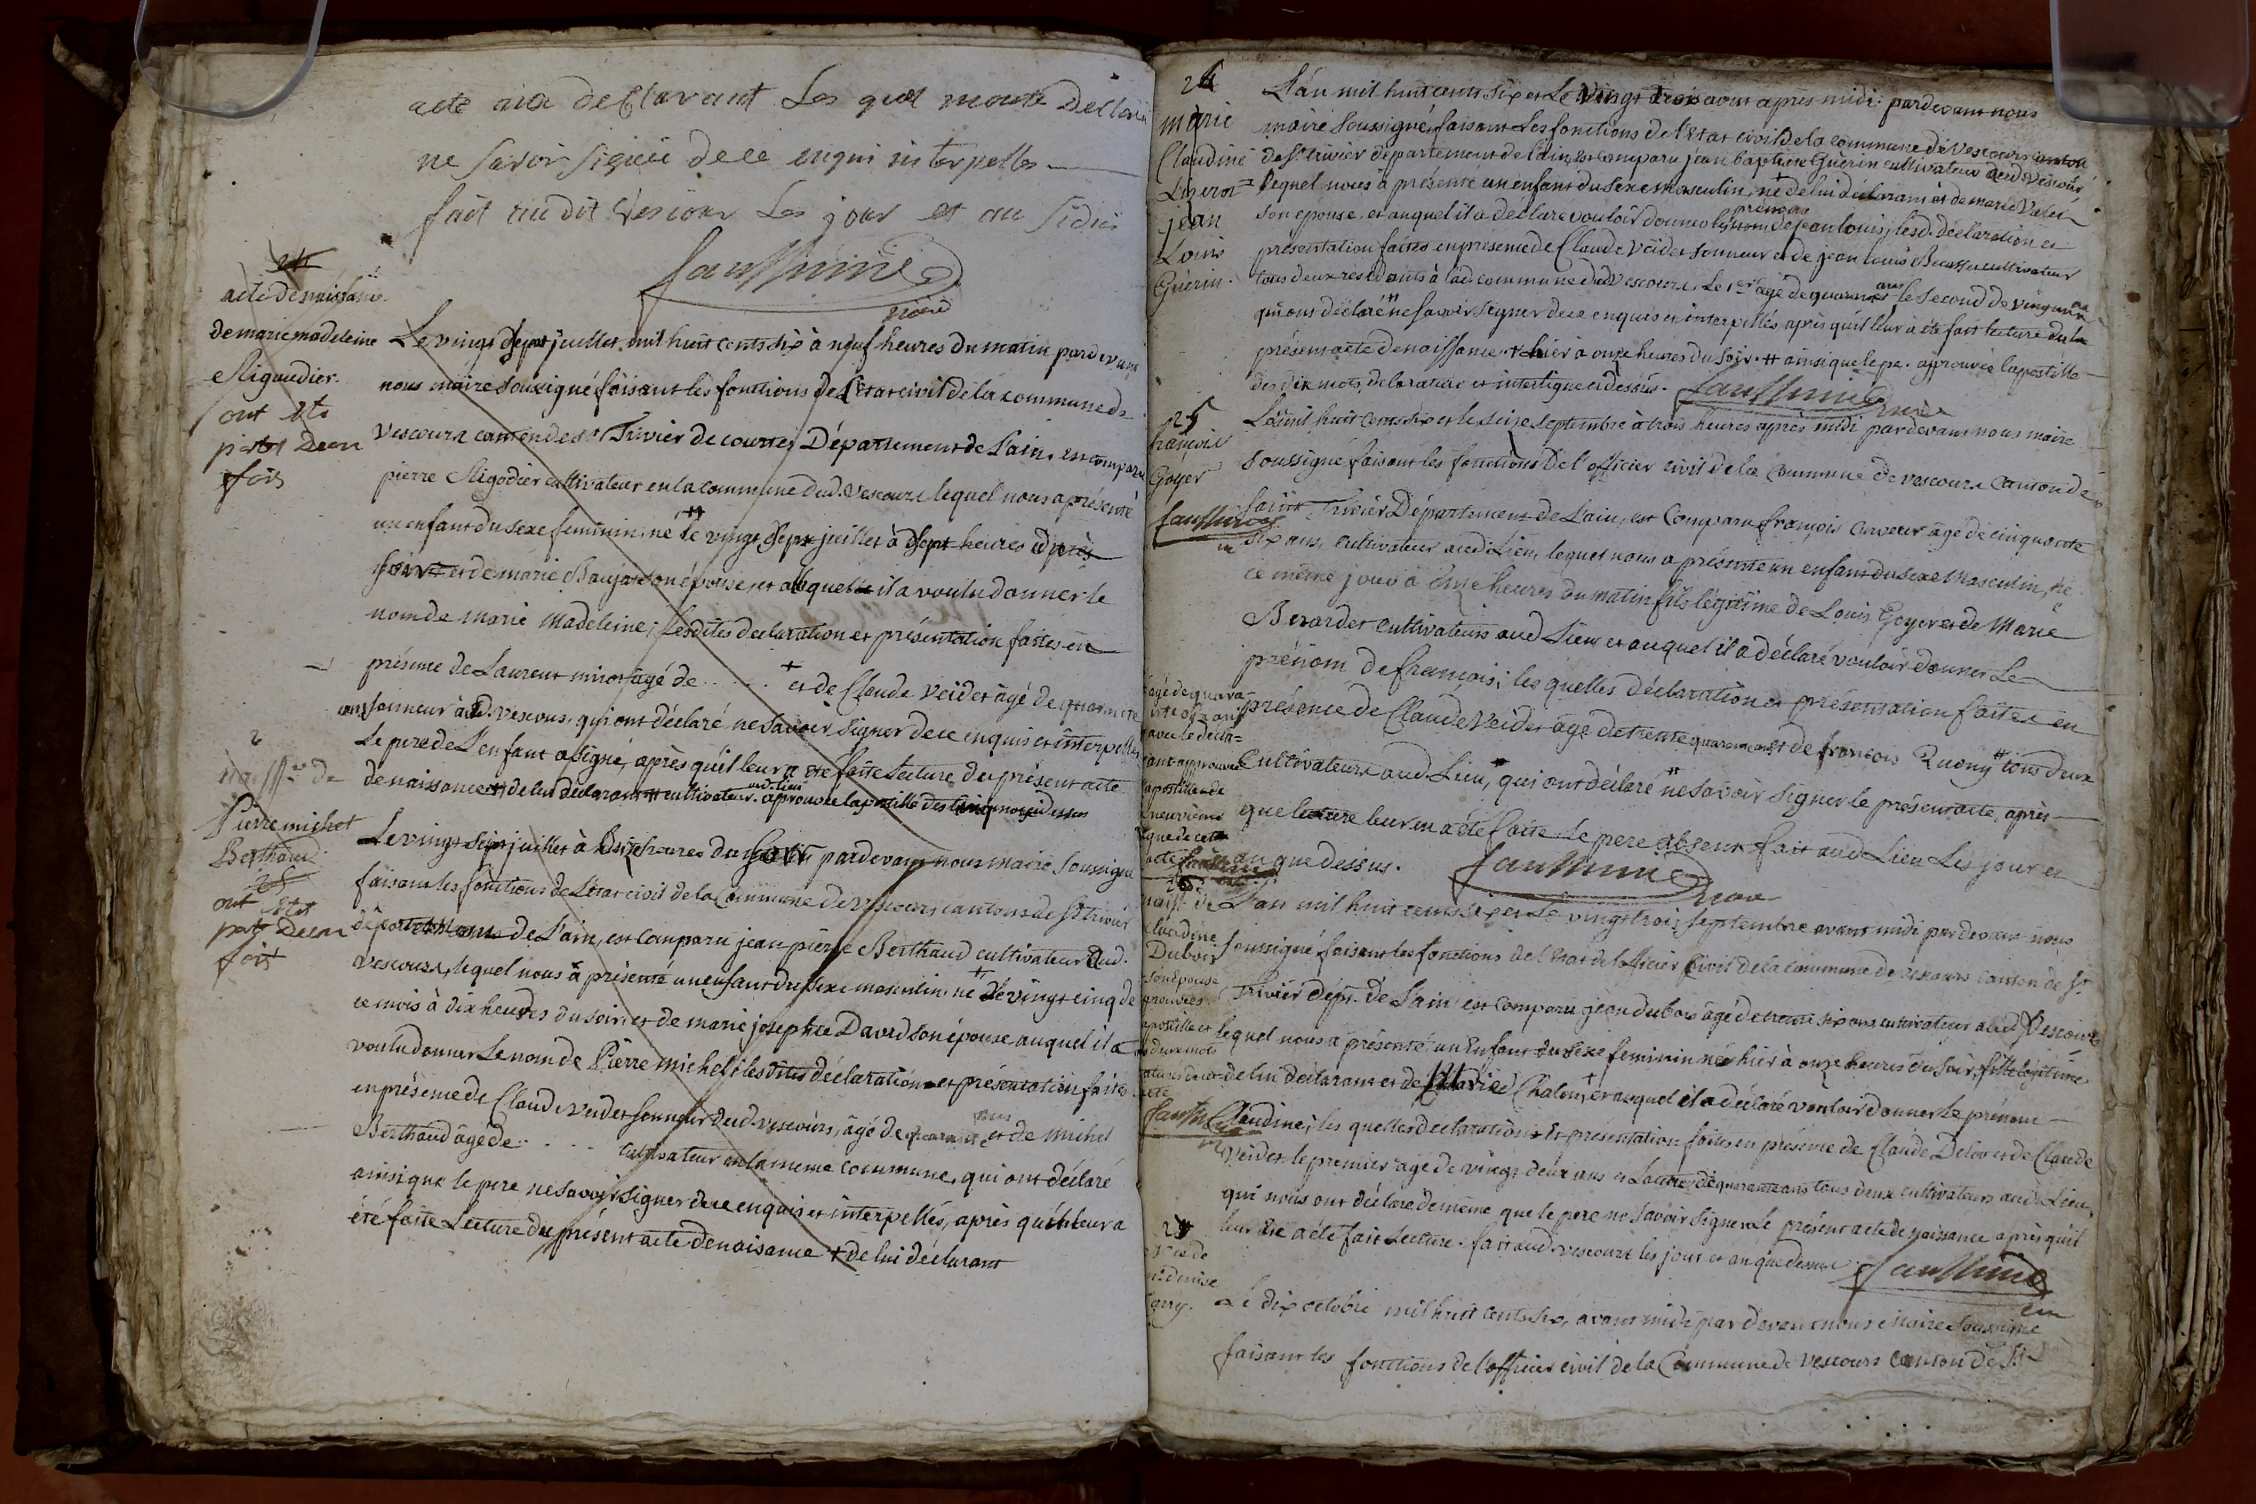 acte aux declarant Les quel mont declaré
ne savoir signée de ce enqui interpelles
fait audit Vescour Les jour et an sidit
maire
acte de naissance
de marie madeleine
Rigaudier.
ont ete
porté deux
fois
Le vingt sept juillet mil huit cents six à neuf heures du matin pardevant
nous maire soussigné faisant les fonctions de L'état civil de la commune de
Vescours canton de st Trivier de courtes Département de L'ain, est comparu
pierre Rigodier cultivateur en la commune dud. Vescours lequel nous a présenté
un enfant du sexe feminin né # le vingt sept juillet à sept heures
et de marie Baujard son épouse, et auquel il a voulu donner le
nom de Marie Madeleine; les dites déclaration et présentation faites en
présence de Laurent miror agé de . . . . + et de Claude Veidet âgé de quarante
ans sonneur aud. Vescours, qui ont déclaré ne savoir signer de ce enquis et interpellés
Le pere de L'enfant a signé, après qu'il leur a été faite Lecture du présent acte
de naissance # de lui déclarant # cultivateur aud. lieu. aprouvée lapostille des cinq mots ci dessus
naisse de
Pierre michel
Berthaud
25
ont etet
porté deux
fois
Le vingt sept juillet à onze heures du soir pardevant nous maire soussigné
faisant les fonctions de L'état civil de la Commune de Vescours cantons de St trivier
département de L'ain, est comparu jean pierre Berthaud cultivateur dud.
Vescours, lequel nous a présenté un enfant du sexe masculin né + le vingt cinq de
ce mois à dix heures du soir et de marie josephte David son épouse auquel il a
voulu donner Le nom de Pierre michel; les dites déclaration et présentation faites
en présence de Claude Veidet sonneur dud. vescours, âgé de quarante ans et de Michel
Berthaud âgé de . . . . cultivateur en la meme commune, qui ont déclaré
ainsi que le pere ne savoir signer de ce enquis et interpellés, après qu'il leur a
été faite Lecture du présent acte de naisance + de lui déclarant
24
marie
Claudine
jean
Louis
Guérin.
L'an mil huit cents six et Le vingt trois aout après midi pardevant nous
maire soussigné, faisant Les fonctions de l'état civil de la commune de Vescours canton
de St. trivier département de l'ain, est comparu jean baptiste Guérin cultivateur aud. Vescours
lequel nous à présenté un enfant du sexe masculin, né + de lui déclarant et de marie Valet
son épouse, et auquel il a déclaré vouloir donner les prénoms de jean louis; lesd. déclaration et
présentation faites en presence de Claude Veidet sonneur et de jean louis cultivateur
tous deux residants à lad. commune dud. Vescours. Le 1er âgé de quarante ans le second de vingt
qui ont déclaré # ne savoir signer de ce enquis et interpellés, après qu'il leur a été fait lecture du
présent acte de naissance. + hier à onze heures du soir. # ainsi que le pe. aprouvée lapostille
des dix mots declaratio et interligne ci dessus.
maire
25
françois
Goyer
L'an mil huit cents six et le seize septembre à trois heures après midi pardevant nous maire
soussigné faisant les fonctions De l'officier civil de la Commune de vescours canton de
saint Trivier Département de L'ain, est Comparu françois âgé de cinquante
six ans, cultivateur aud. Lieu, lequel nous a présenté un enfant du sexe Masculin, né
ce même jour à onze heures du matin fils légitime de Louis Goyer et de Marie
Berardet cultivateurs aud. Lieu et auquel il a déclaré vouloir donner Le
prénom de françois; les quelles déclaration et présentation faites en
présence de Claude Veidet âgé de trente quarante ans et de françois Quony # tous deux
Cultivateurs aud. Lieu, # qui ont déclaré # ne savoir signer le présent acte, après
que lecture leur en a été faite. Le pere absent fait aud. Lieu Les jour et
an que dessus.
maire
26
naisse de
claudine
Dubois
L'an mil huit cents six et Le vingt trois septembre avant midi par devant nous
soussigné faisant les fonctions de l'Etat de l'officier Civil de la Commune de vescours canton de St.
Trivier dépt. de L'ain est comparu jean dubois âgé de trente six ans cultivateur aud. Vescours
lequel nous à présenté un Enfant du sexe feminin née hier à onze heures du soir, fille légitime
de lui declarant et de Marie Chalon, + et auquel il a déclaré vouloir donner Le prénom
Claudine; les quelles déclarations Et présentation faites en présence de Claude Delor et de Claude
Veidet le premier âgé de vingt deux ans et Lautre de quarante ans tous deux cultivateurs aud. Lieu,
qui nous ont déclaré de même que le pere ne Savoir Signer Le présent acte de naissance après qu'il
leur en a été fait Lecture. fait aud. vescours les jour et an que dessus
27
Le dix octobre mil huit cents six, avant midi par devant nous maire soussigné
faisant les fonctions de l'officier civil de la Commune de Vescours canton de St